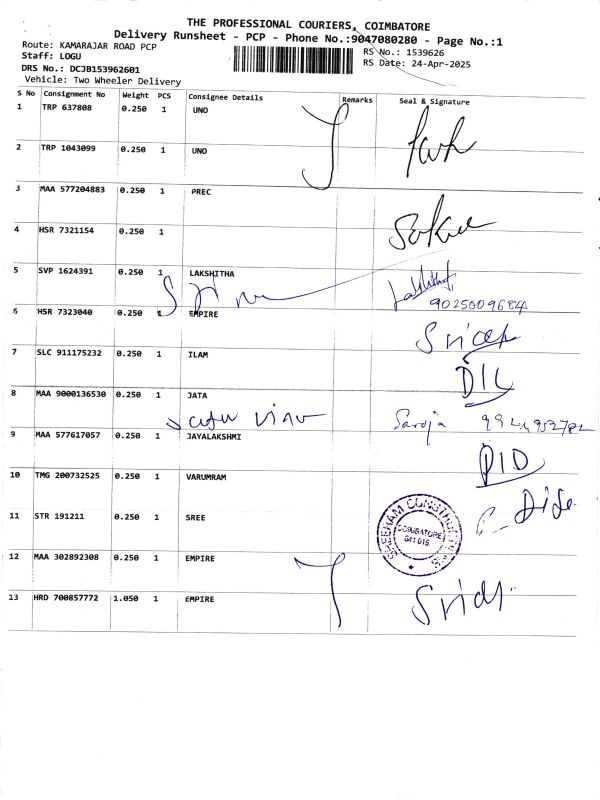 THE PROFESSIONAL COURIERS, COIMBATORE
Delivery Runsheet - PCP - Phone No.:9047080280 - Page No.:1
Route: KAMARAJAR ROAD PCP
Staff: LOGU
DRS No.: DCJB153962601
Vehicle: Two Wheeler Delivery
RS No.: 1539626
RS Date: 24-Apr-2025
S No Consignment No Weight PCS Consignee Details Remarks Seal & Signature
1 TRP 637808 0.250 1 UNO
2 TRP 1043099 0.250 1 UNO
3 MAA 577204883 0.250 1 PREC
4 HSR 7321154 0.250 1
5 SVP 1624391 0.250 1 LAKSHITHA
9025009684
6 HSR 7323040 0.250 1 EMPIRE
7 SLC 911175232 0.250 1 ILAM
8 MAA 9000136530 0.250 1 JATA
Saroja
9 MAA 577617057 0.250 1 JAYALAKSHMI
10 TMG 200732525 0.250 1 VARUMRAM
11 STR 191211 0.250 1 SREE
SREERAM CONSTRUCTIONS
COIMBATORE
641 015.
12 MAA 302892308 0.250 1 EMPIRE
13 HRD 700857772 1.050 1 EMPIRE